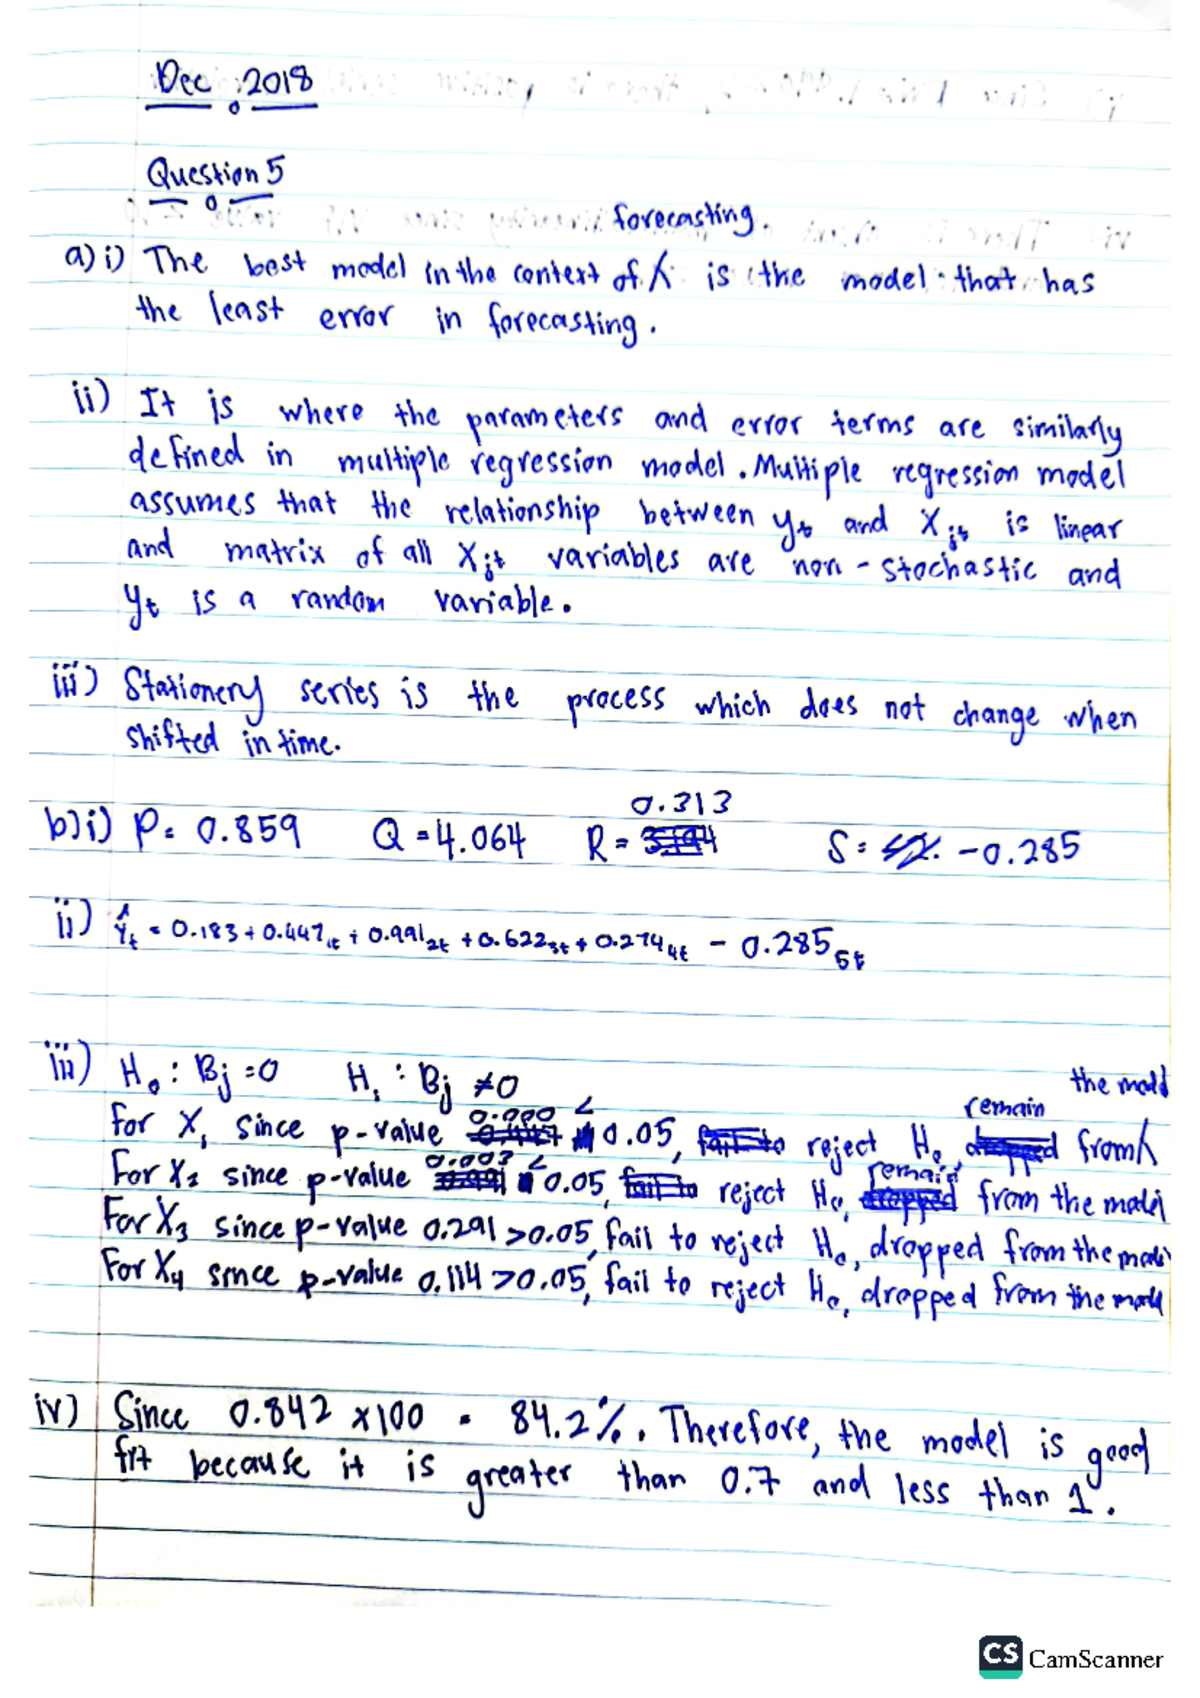 Dec 2018
Question 5
forecasting.
a) i) The best model in the context of ʎ is the model that has
the least error in forecasting.
ii) It is where the parameters and error terms are similarly
defined in multiple regression model. Multiple regression model
assumes that the relationship between yt and Xjt is linear
and matrix of all Xjt variables are non-stochastic and
yt is a random variable.
iii) Stationery series is the process which does not change when
shifted in time.
0.313
b) i) P = 0.859 Q = 4.064 R = S = -0.285
ii) Ŷt = 0.183 + 0.447 1t + 0.991 2t + 0.622 3t + 0.274 4t - 0.285 5t
iii) H0 : Bj = 0 H1 : Bj ≠ 0 the model
0.000 < remain
For X1 since p-value 0.05, reject H0, from ʎ
0.003 < remain
For X2 since p-value 0.05, reject H0, from the model
For X3 since p-value 0.291 > 0.05, fail to reject H0, dropped from the model
For X4 since p-value 0.114 > 0.05, fail to reject H0, dropped from the model
iv) Since 0.842 x 100 = 84.2%. Therefore, the model is good
fit because it is greater than 0.7 and less than 1.
CS CamScanner